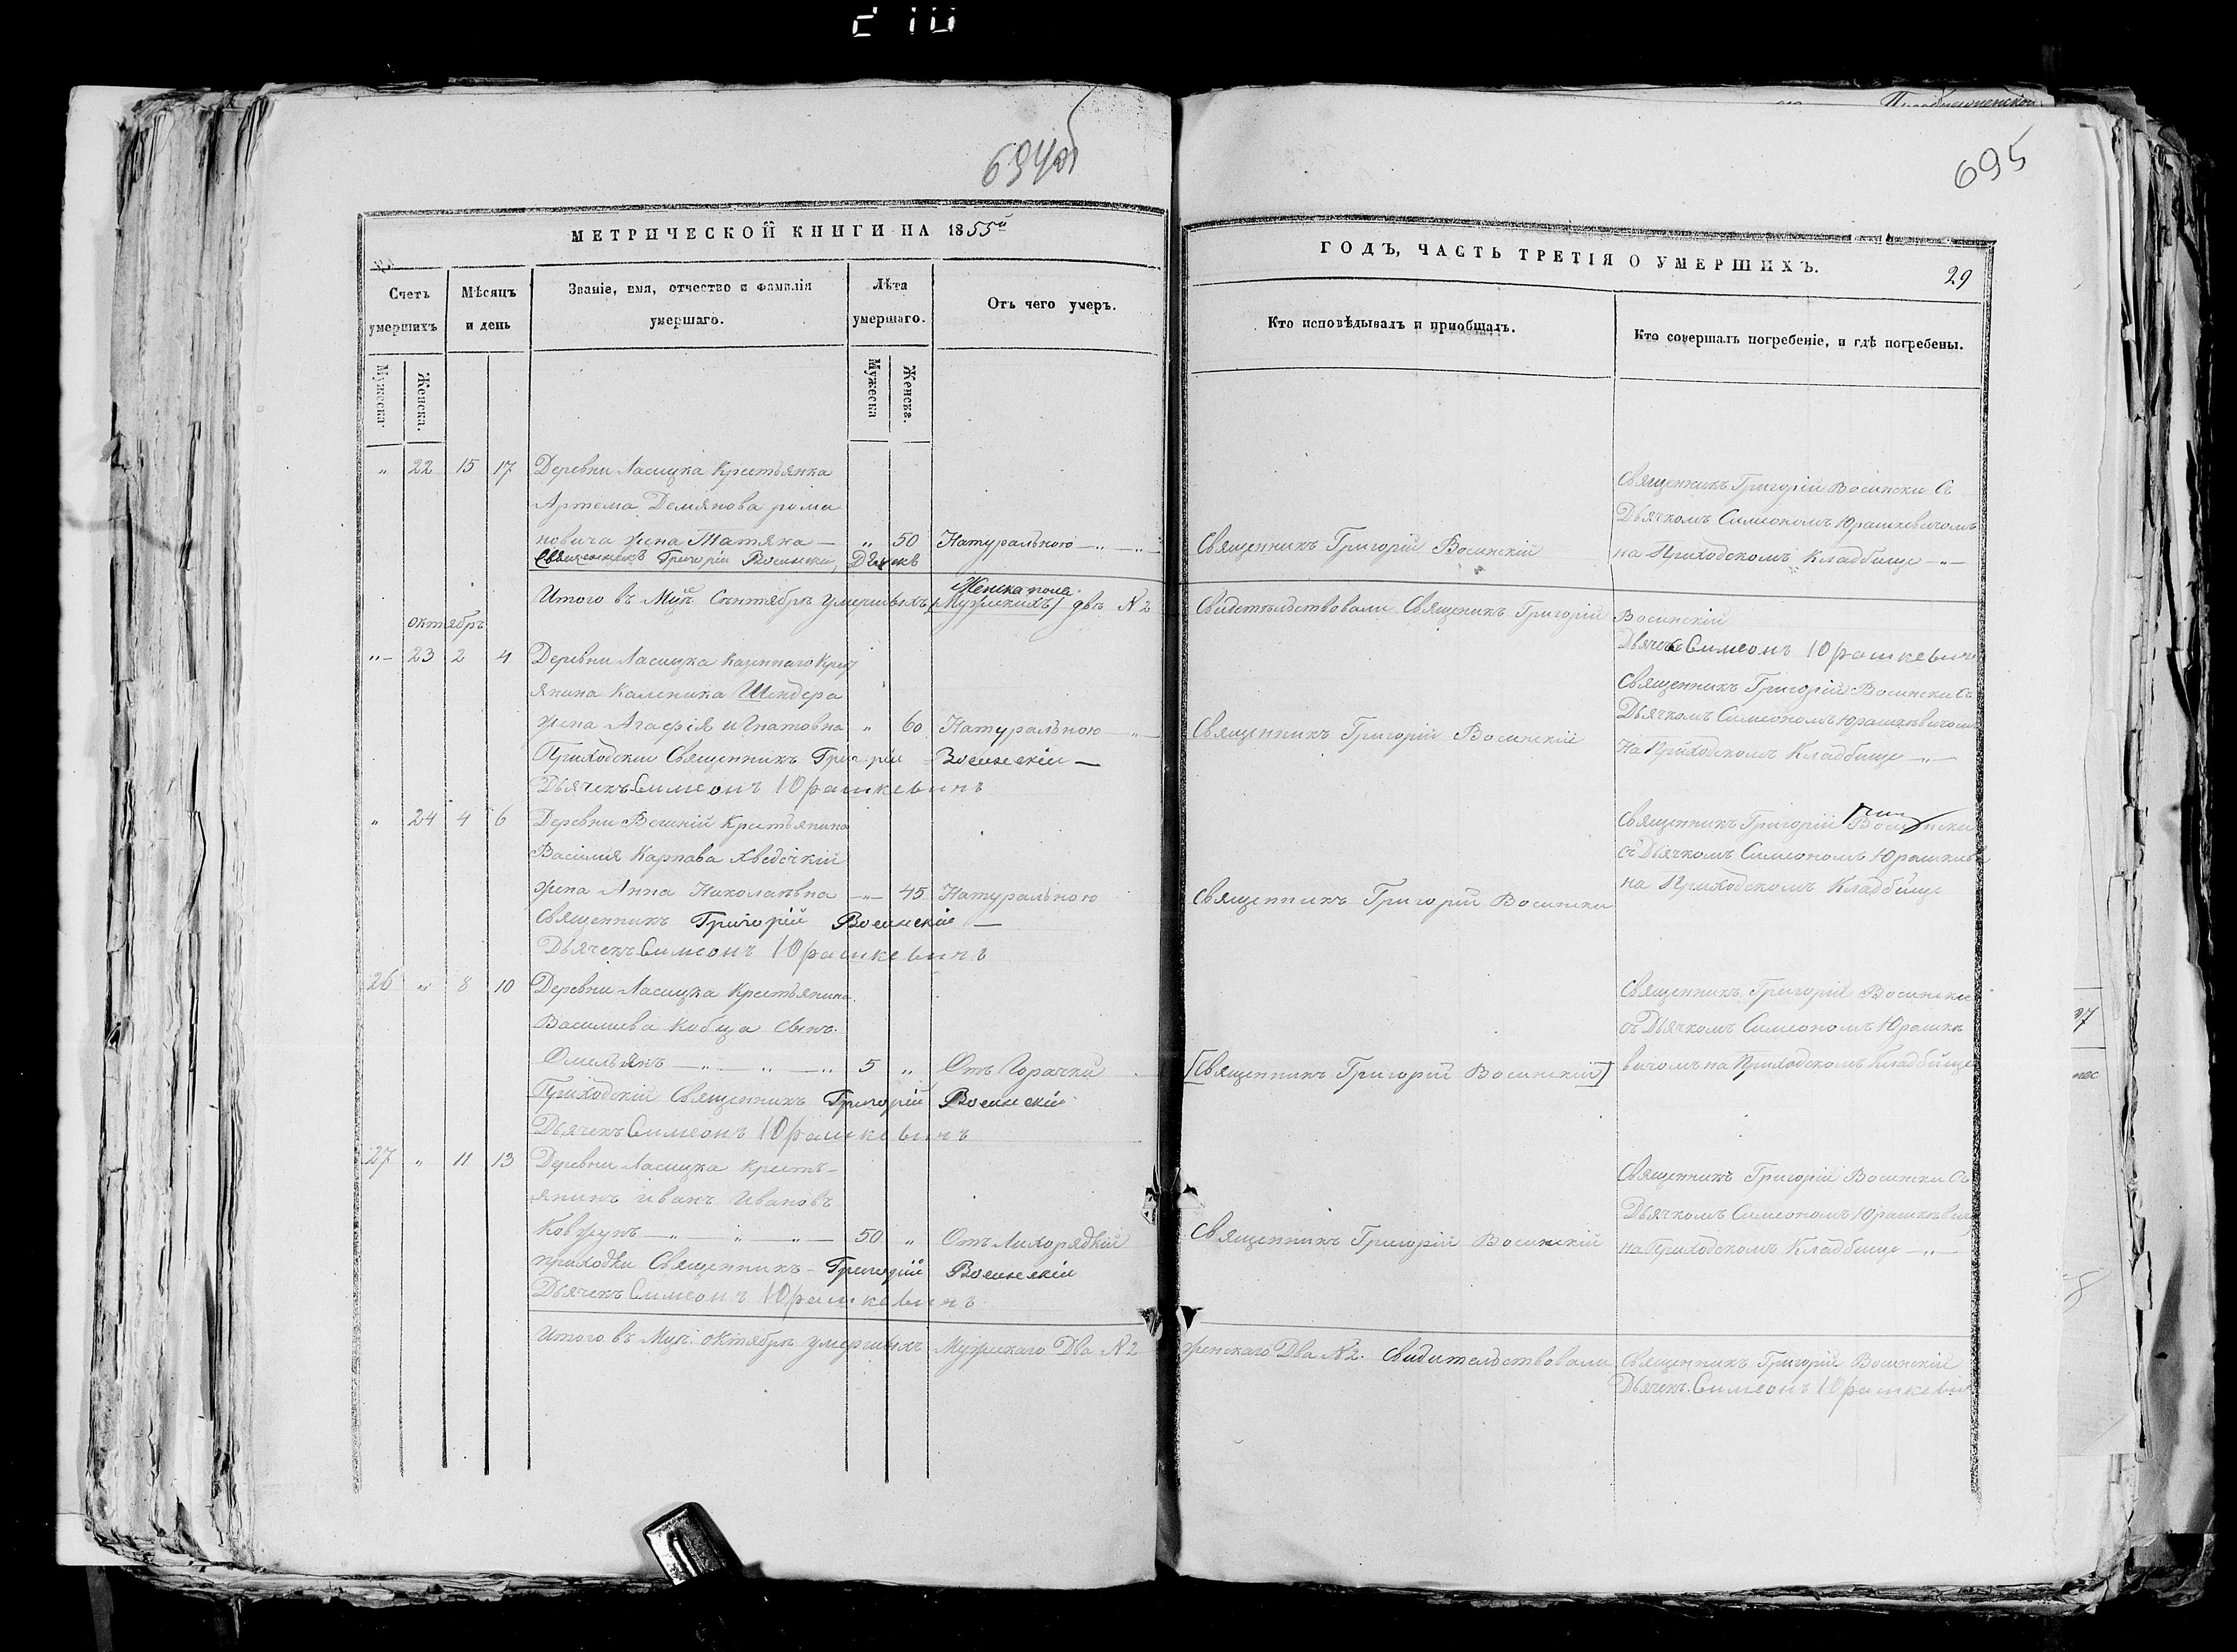 694об
695
МЕТРИЧЕСКОЙ КНИГИ НА 1855й
ГОДЪ, ЧАСТЬ ТРЕТІЯ О УМЕРШИХЪ.
29
Счетъ умершихъ
Мѣсяцъ и день
Званіе, имя, отчество и фамилія умершаго.
Лѣта умершаго.
Отъ чего умеръ.
Кто исповѣдывалъ и пріобщалъ.
Кто совершалъ погребеніе, и гдѣ погребены.
Мужеска.
Женска.
Мужеска
Женска.
„ 22 15 17 Деревни Ласицка Крестьянка
Артема Демянова рома
новича жена Татяна — „ 50 Натуральною — „ — „
Священникъ Григорій Восински, Дьячекъ
Священникъ Григорій Восинскій
Священникъ Григорій Восински Съ
Дьячкомъ Симеономъ Юрашкевичомъ
на Приходскомъ Кладбище — „ —
Женска пола
Итого въ Мцѣ Сентябрѣ умершыхъ [Мужскихъ] двѣ N 2
Свидетельствовали Священикъ Григорій Восинскій
Дьячекъ Симеонъ Юрашкевичъ
октябрь
„ — 23 2 4 Деревни Ласицка Казеннаго Крест
янина Каленика Шендера
жена Агафія Игнатовна „ 60 Натуральною — „ —
Приходски Священникъ Григорій Восинскій —
Дьячекъ Симеонъ Юрашкевичъ
Священникъ Григорій Восинскій
Священникъ Григорій Восински Съ
Дьячкомъ Симеономъ Юрашкевичомъ
На Приходскомъ Кладбище — „ —
„ 24 4 6 Деревни Вешній Крестьянина
Васілія Карпава Хведечкій
жена Анна Николаевна — „ — 45 Натуральною
Священникъ Григорій Восинскій —
Дьячекъ Симеонъ Юрашкевичъ
Священникъ Григорій Восински
Священникъ Григорій Восински
съ Дьячкомъ Симеономъ Юрашкев
на Приходскомъ Кладбище
26 „ 8 10 Деревни Ласицка Крестьянина
Василиева Кобца Сынъ
Омельянъ — „ — „ — „ 5 „ Отъ Горачки
Приходскій Священникъ Григорій Восинскій
Дьячекъ Симеонъ Юрашкевичъ
[Священникъ Григорій Восинскій]
Священникъ Григорій Восински
съ Дьячкомъ Симеономъ Юрашке
вичомъ на Приходскомъ Кладбище
27 „ 11 13 Деревни Ласицка Кресть-
янинъ Иванъ Ивановъ
Ковжунъ — „ — „ — „ — 50 „ Отъ Лихорядкій
приходки Священникъ — Григорій Восинскій
Дьячекъ Симеонъ Юрашкевичъ
Священникъ Григорій Восинскій
Священникъ Григорій Восински Съ
Дьячкомъ Симеономъ Юрашкевич
на Приходскомъ Кладбище — „ —
Итого въ Мцѣ октябрѣ умершыхъ Мужскаго Два N 2 женскаго Два N 2. Свидительствовали Священникъ Григорій Восинскій
Дьячекъ Симеонъ Юрашкевич